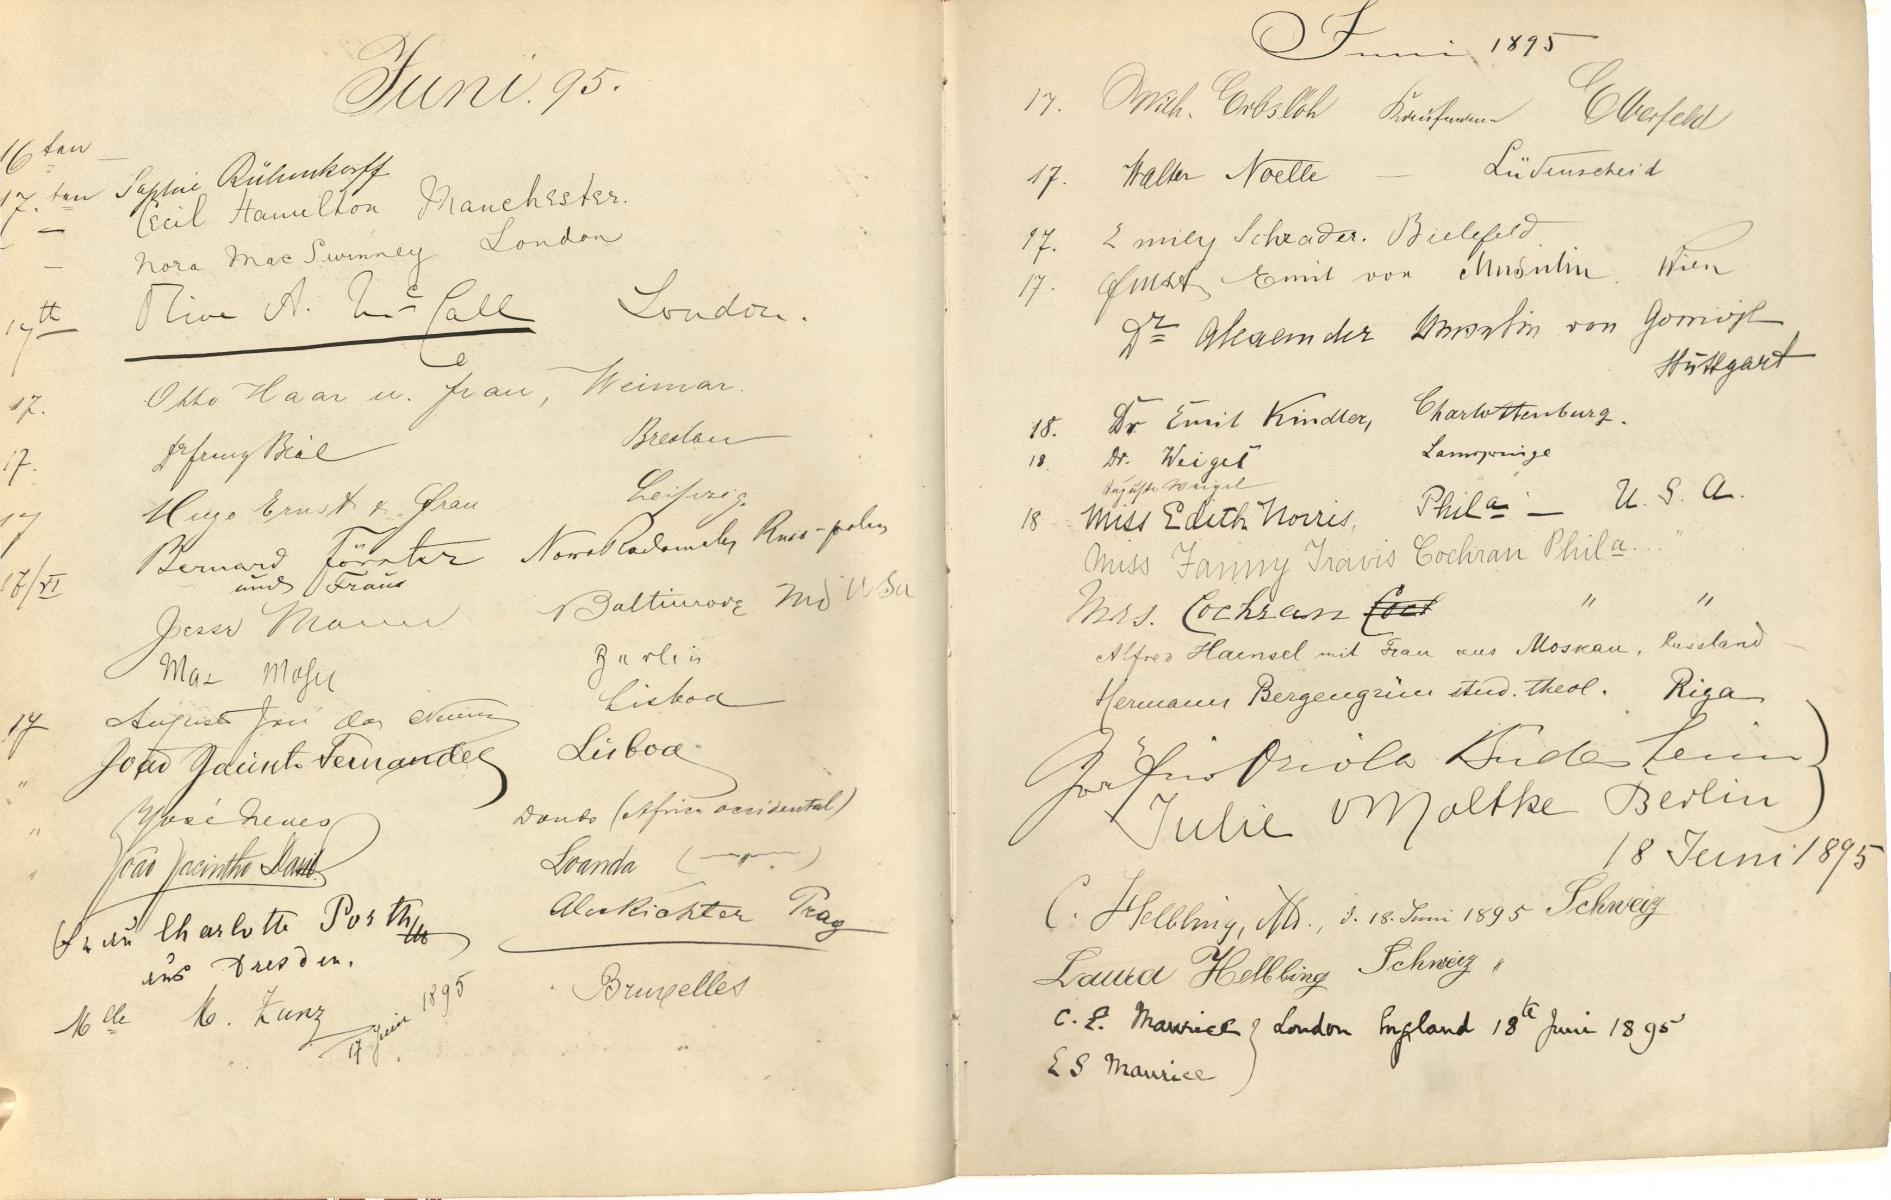 Juni. 95.
16 ten
17. ten Sophie Rühmkorff
— Cecil Hamilton Manchester.
— Nora MacSwinney London
17th Olive A. McCall London.
17. Otto Haar u. Frau, Weimar.
17. Dr Bial Breslau
17 Hugo Ernst & Frau Leipzig.
17/VI Bernard Förster Nowo Radomsk Russ-polen
und Frau
Jesse Baltimore Md USA
Max Moser Berlin
17 Lisboa
" João Jacinto Fernandes Lisboa
" José Neves (Africa occidental)
" João Jacintho David Loanda ( — " — )
Frau Charlotte Porth Alex Richter Prag
aus Dresden.
Mlle M. Zunz Bruxelles
17 Juin 1895
Juni 1895
17. Wilh. Erbslöh Kaufmann Elberfeld
17. Walter Noelle — Lüdenscheid
17. Emily Schrader. Bielefeld
17. Ernst Emil von Musulin Wien
Dr Alexander Musulin von Gomirje
Stuttgart
18. Dr. Emil Kindler, Charlottenburg.
18. Dr. Weigel Lamspringe
Auguste Weigel "
18 Miss Edith Norris, Phila — U. S. A.
Miss Fanny Travis Cochran Phila.... "
Mrs. Cochran " "
Alfred Haensel mit Frau aus Moskau, Russland —
Hermann Bergengrün stud. theol. Riga
Oriola
Julie v Moltke Berlin
18 Juni 1895
C. Helbling, d. 18. Juni 1895 Schweiz
Laura Helbling Schweiz "
C. E. Maurice } London England 18th Juni 1895
E S Maurice